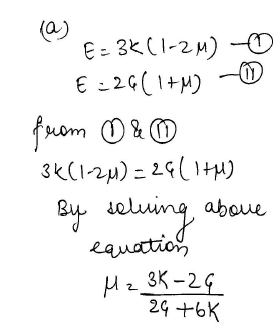 (a)
E = 3K(1-2μ) —Ⓘ
E = 2G(1+μ) —Ⓘⓘ
from Ⓘ & Ⓘⓘ
3K(1-2μ) = 2G(1+μ)
By solving above
equation
μ = 3K-2G / 2G+6K